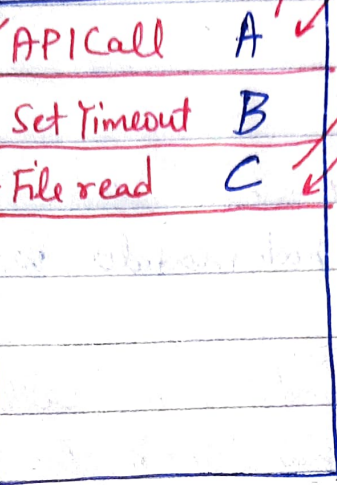 API Call A
Set Timeout B
File read C